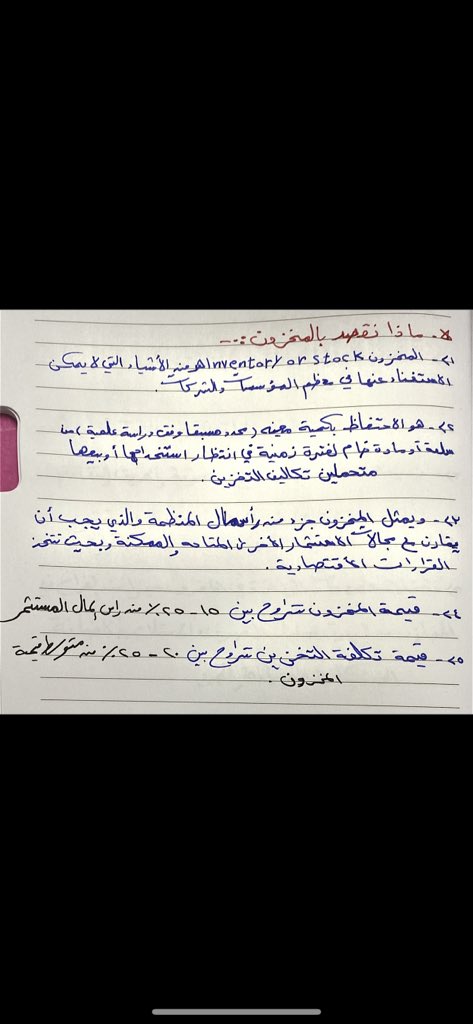 لا- ماذا نقصد بالمخزون :--
١- المخزون Inventory or stock هو من الأشياء التي لا يمكن
الاستغناء عنها في معظم المؤسسات والشركات .
٢- هو الاحتفاظ بكمية معينة (محدد مسبقا وفق دراسة علمية) من
سلعة أو مادة خام لفترة زمنية في انتظار استخدامها أو بيعها
متحملين تكاليف التخزين .
٣- ويمثل المخزون جزء من رأسمال المنظمة والذي يجب أن
يقارن مع مجالات الاستثمار الأخرى المتاحه والممكنة وبحيث تتخذ
القرارات الاقتصادية .
٤- قيمة المخزون تتراوح بين ١٥ - ٢٥٪ من راس المال المستثمر
٥- قيمة تكلفة التخزين تتراوح بين ٢٠ - ٢٥٪ من متوسط قيمة
المخزون .